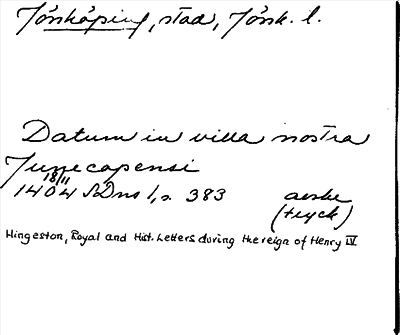 Jönköping, stad, Jönk. l.
Datum in villa nostra
Junecapensi
18/11
1404 SDns 1, s. 383 avskr
(tryck)
Hingeston, Royal and Hist. Letters during the reign of Henry IV